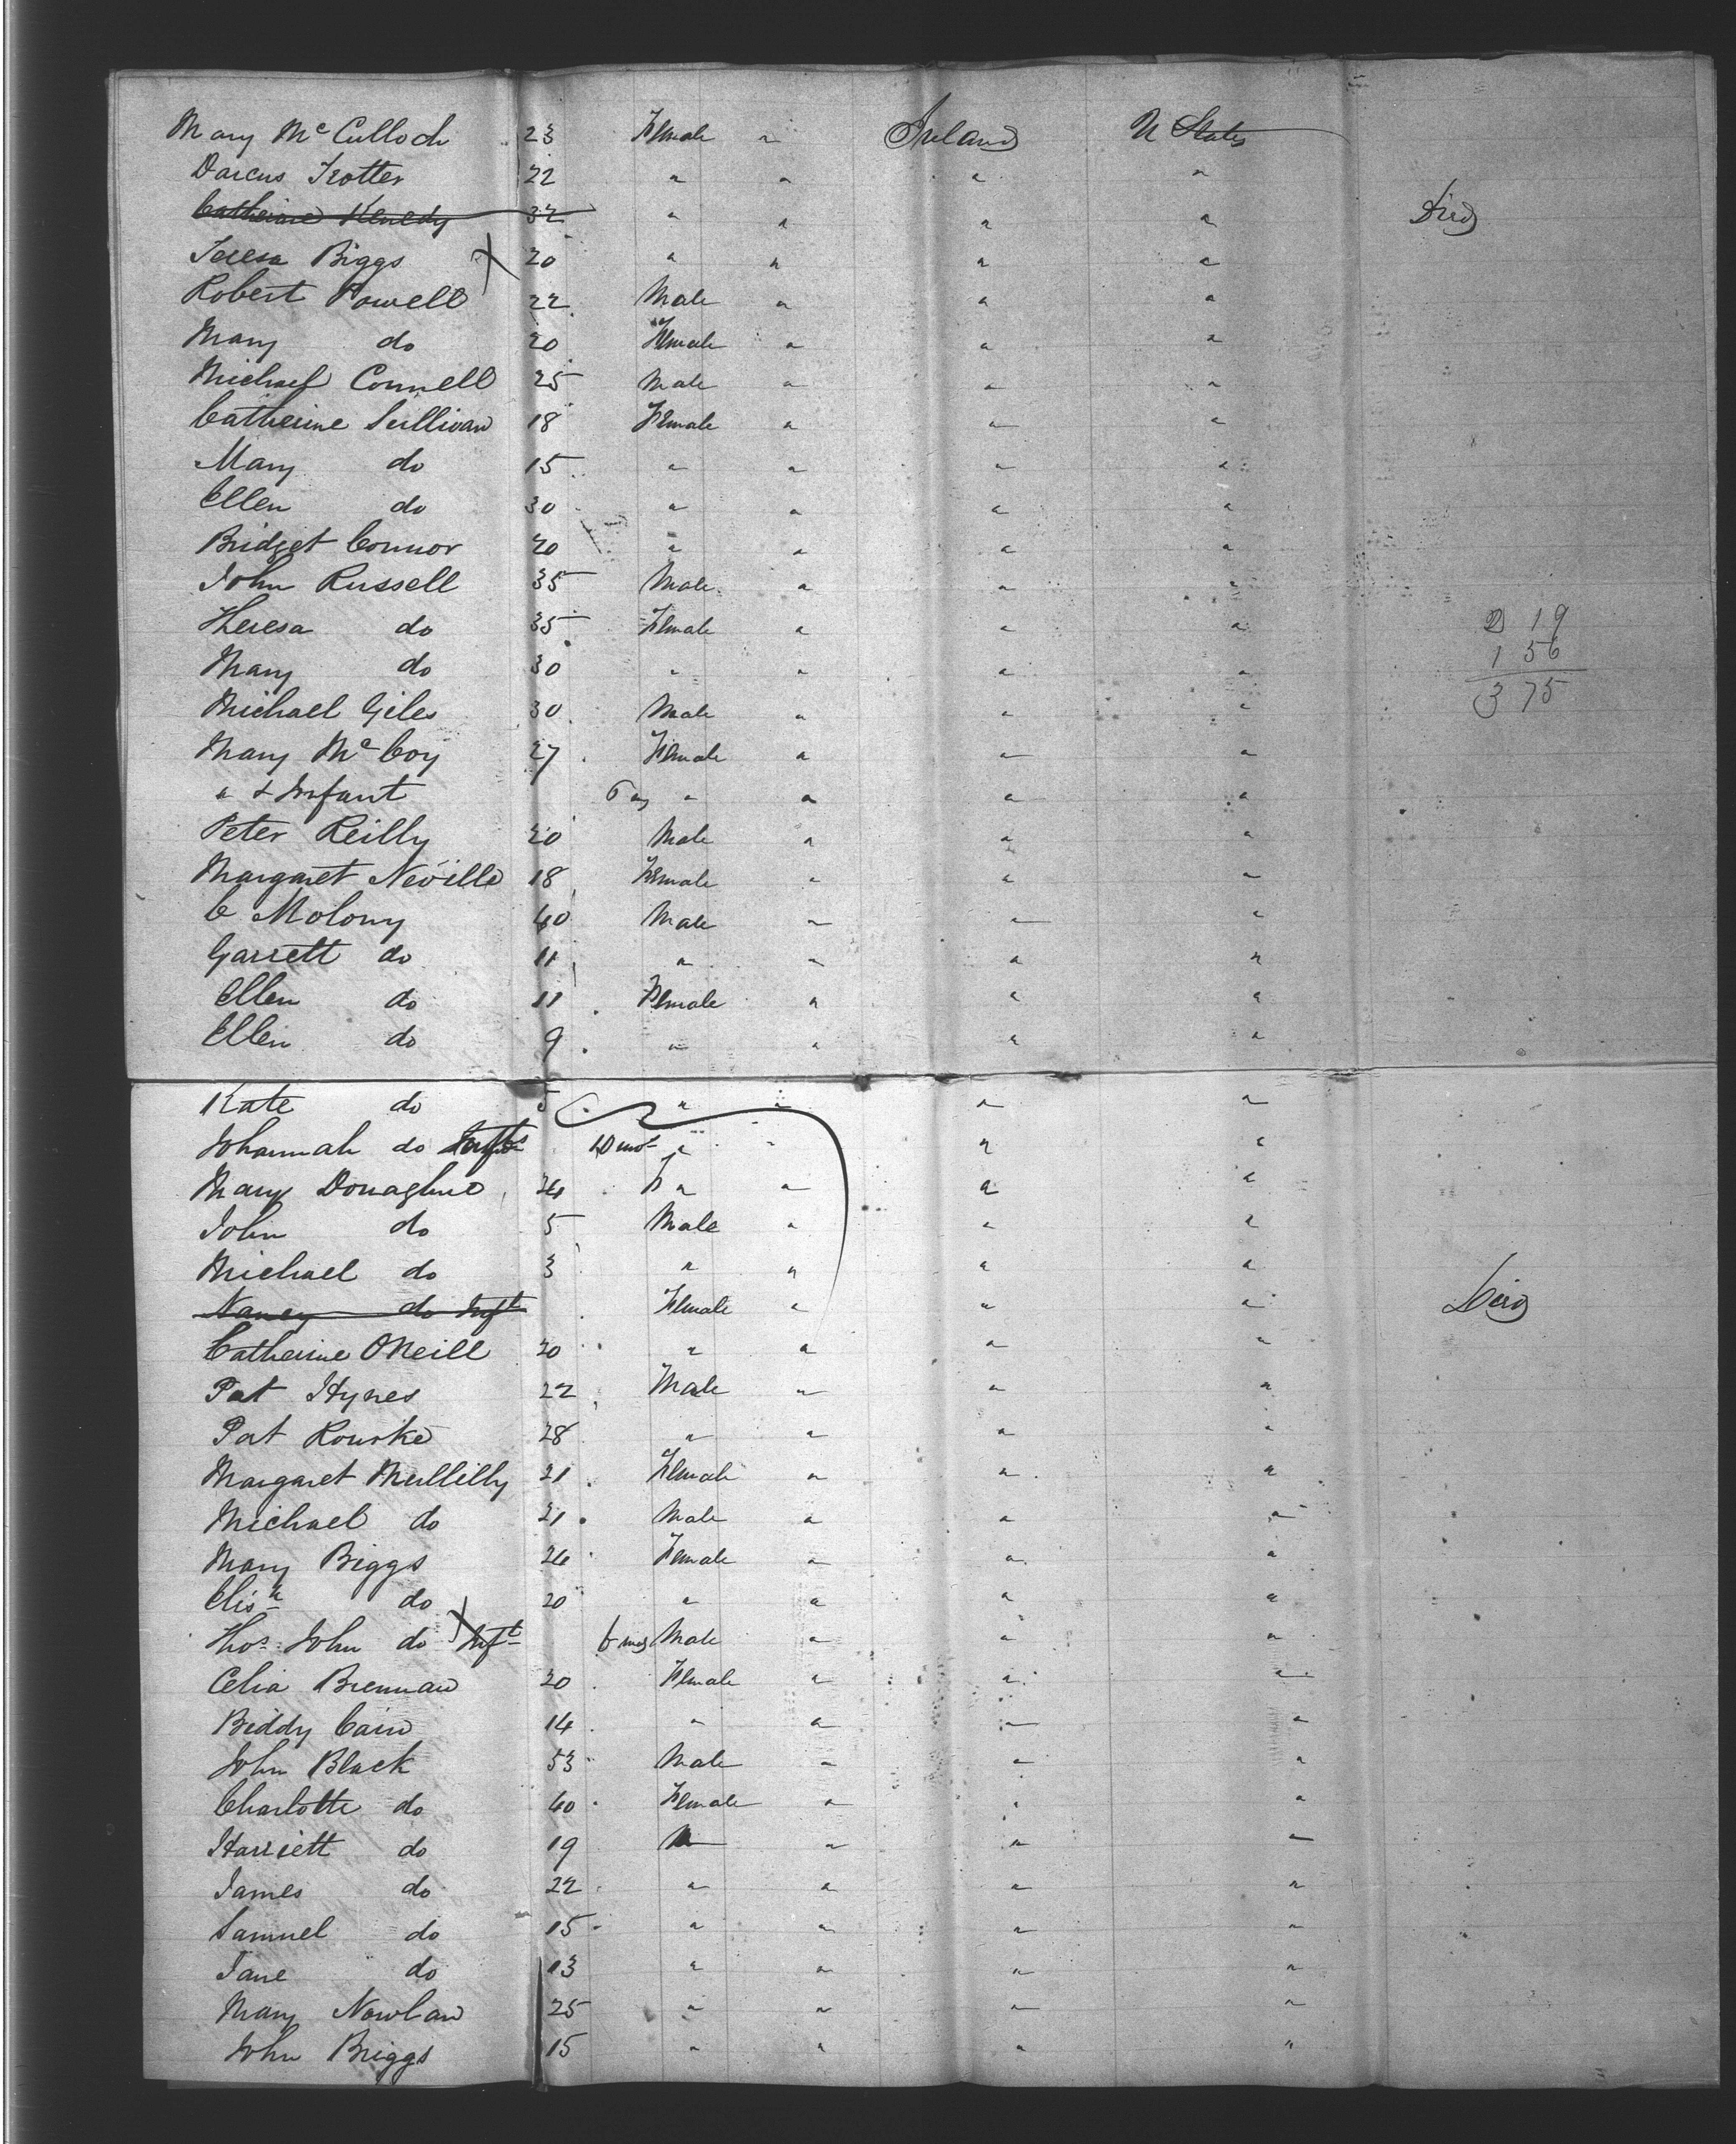 Mary McCulloch 23 Female " Ireland U States
Darcus Trotter 22 " " " "
Catherine Kenedy 32 " " " " Died
Teresa Biggs 20 " " " "
Robert Powell 22 Male " " "
Mary do 20 Female " " "
Michael Connell 25 Male " " "
Catherine Sullivan 18 Female " " "
Mary do 15 " " " "
Ellen do 30 " " " "
Bridget Connor 20 " " " "
John Russell 35 Male " " "
Theresa do 35 Female " " " 2 19
Mary do 30 " " " " 1 56
Michael Giles 30 Male " " " 3 75
Mary McCoy 27 Female " " "
" & Infant " " " "
Peter Reilly 20 Male " " "
Margaret Neville 18 Female " " "
C Molony 40 Male " " "
Garrett do 11 " " " "
Ellen do 11 Female " " "
Ellen do 9 " " " "
Kate do 5 " " " "
Johannah do 10 mos " " " "
Mary Donaghue 24 F " " " "
John do 5 Male " " "
Michael do 3 " " " "
Nancy do Inft Female " " " Died
Catherine ONeill 20 " " " "
Pat Hynes 22 Male " " "
Pat Rourke 28 " " " "
Margaret Mullilly 21 Female " " "
Michael do 21 Male " " "
Mary Biggs 24 Female " " "
Elisth do 20 " " " "
Thos John do Inft 6 mos Male " " "
Celia Brennan 20 Female " " "
Biddy Cain 14 " " " "
John Black 53 Male " " "
Charlotte do 40 Female " " "
Harriett do 19 " " " "
James do 22 " " " "
Samuel do 15 " " " "
Jane do 13 " " " "
Mary Nowlan 25 " " " "
John Briggs 15 " " " "